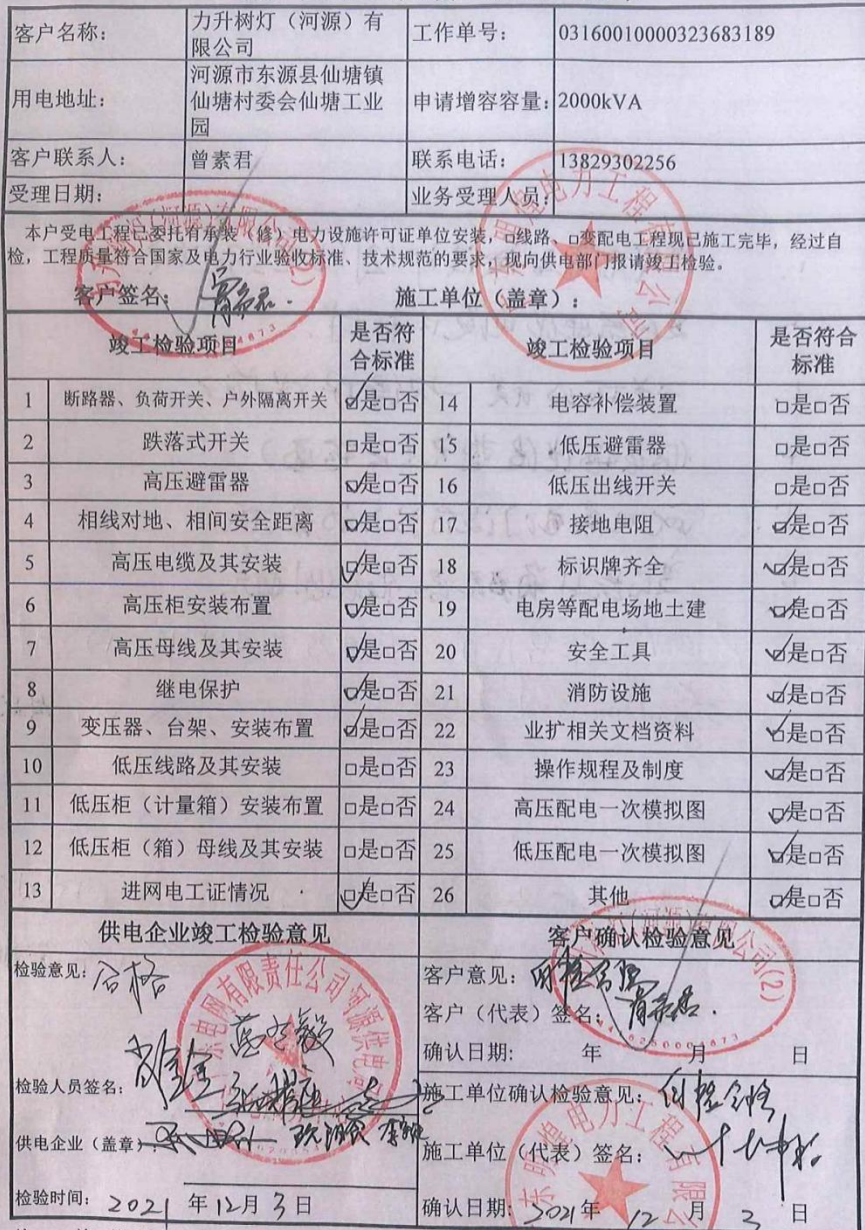 客户名称： 力升树灯（河源）有限公司 工作单号： 03160010000323683189
用电地址： 河源市东源县仙塘镇仙塘村委会仙塘工业园 申请增容容量： 2000kVA
客户联系人： 曾素君 联系电话： 13829302256
受理日期： 业务受理人员：
本户受电工程已委托有承装（修）电力设施许可证单位安装，□线路、□变配电工程现已施工完毕，经过自
检，工程质量符合国家及电力行业验收标准、技术规范的要求，现向供电部门报请竣工检验。
客户签名： 施工单位（盖章）：
竣工检验项目 是否符合标准 竣工检验项目 是否符合标准
1 断路器、负荷开关、户外隔离开关 ☑是□否 14 电容补偿装置 □是□否
2 跌落式开关 □是□否 15 低压避雷器 □是□否
3 高压避雷器 ☑是□否 16 低压出线开关 □是□否
4 相线对地、相间安全距离 ☑是□否 17 接地电阻 ☑是□否
5 高压电缆及其安装 ☑是□否 18 标识牌齐全 ☑是□否
6 高压柜安装布置 ☑是□否 19 电房等配电场地土建 ☑是□否
7 高压母线及其安装 ☑是□否 20 安全工具 ☑是□否
8 继电保护 ☑是□否 21 消防设施 ☑是□否
9 变压器、台架、安装布置 ☑是□否 22 业扩相关文档资料 ☑是□否
10 低压线路及其安装 □是□否 23 操作规程及制度 ☑是□否
11 低压柜（计量箱）安装布置 □是□否 24 高压配电一次模拟图 ☑是□否
12 低压柜（箱）母线及其安装 □是□否 25 低压配电一次模拟图 ☑是□否
13 进网电工证情况 ☑是□否 26 其他 ☑是□否
供电企业竣工检验意见 客户确认检验意见
检验意见： 合格
客户意见：
客户（代表）签名：
确认日期： 年 月 日
检验人员签名：
施工单位确认检验意见：
供电企业（盖章）：
施工单位（代表）签名：
检验时间： 2021 年 12 月 3 日
确认日期： 2021 年 12 月 3 日